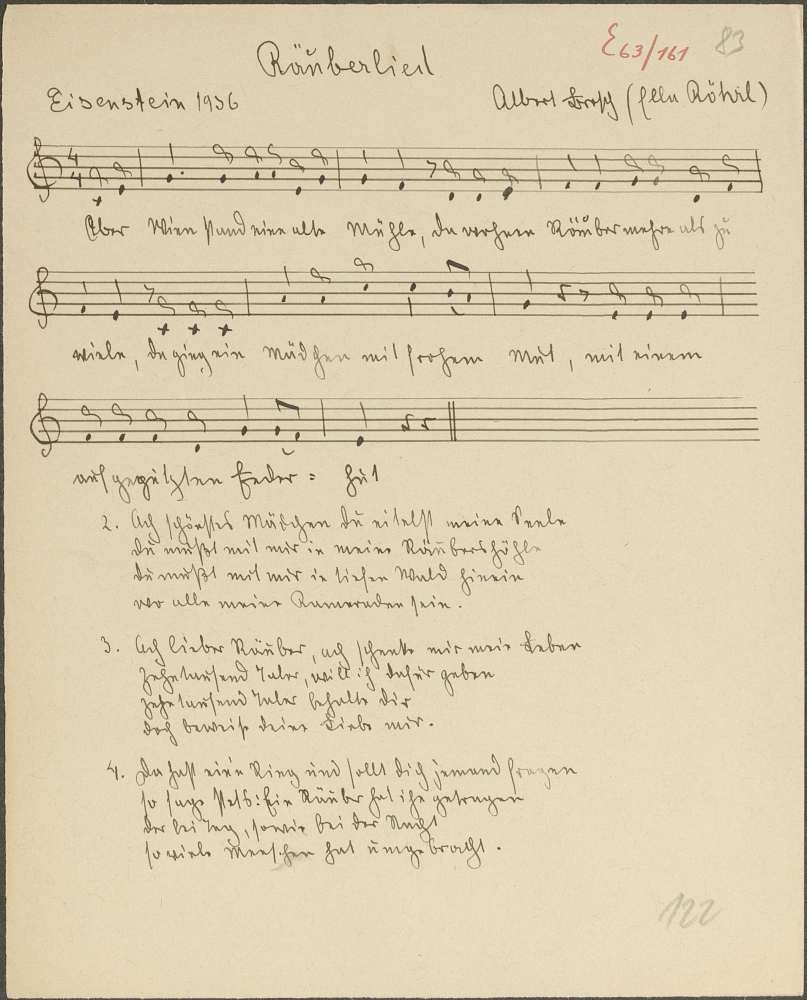 E63/161 83
Räuberlied
Eisenstein 1936
Albert (Ella
4
4
Ober Wien stand eine alte Mühle, da wohnen Räuber mehre als zu
viele, da ging ein Mädchen mit frohem Mut, mit einem
aufgeputzten Feder = hut
2. Ach schönstes Mädchen du eitelst meine Seele
du mußt mit mir in meine Räubershöhle
du mußt mit mir in tiefen Wald hinein
wo alle meine Kameraden sein.
3. Ach lieber Räuber, ach schenke mir mein Leben
Zehntausend Taler, will ich dafür geben
zehntausend Taler behalte dir
doch beweise deine Liebe mir.
4. Da hast einen Ring und sollt dich jemand fragen
so sage stets: Ein Räuber hat ihn getragen
der bei Tag, sowie bei der Nacht
so viele Menschen hat umgebracht.
122